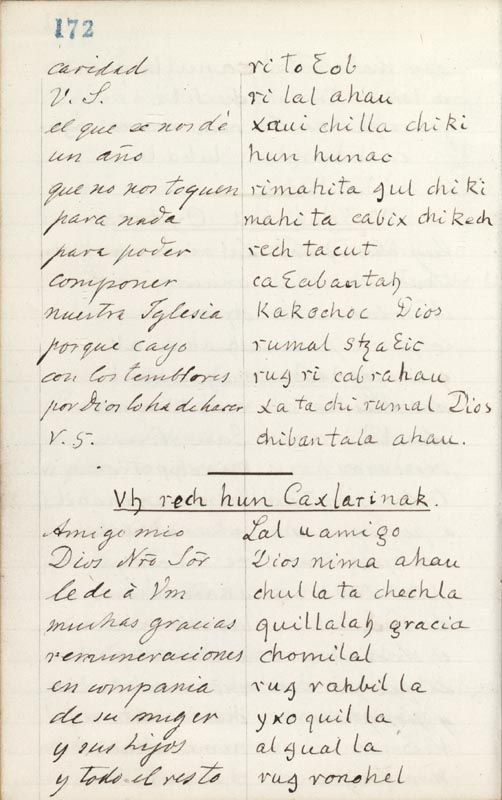 172
caridad ri to Ɛob
V. S. ri lal ahau
el que se nos dé xaui chilla chi ki
un año hun hunac
que no nos toquen rimahita gul chi ki
para nada mahi ta cabix chikech
para poder rech ta cut
componer ca Ɛabantaꜧ
nuestra Iglesia Kakochoc Dios
porque cayo rumal stza Ɛic
con los temblores rug ri cabrahau
por Dios lo ha de hacer xa ta chi rumal Dios
V. S. chibantala ahau.
Vꜧ rech hun Caxlarinak.
Amigo mio Lal u amigo
Dios Nro Sōr Dios nima ahau
le dè à Vm chul la ta chech la
muchas gracias quillalaꜧ gracia
remuneraciones chomilal
en compania rug rahbil la
de su muger y xo quil la
y sus hijos al gual la
y todo el resto rug ronohel